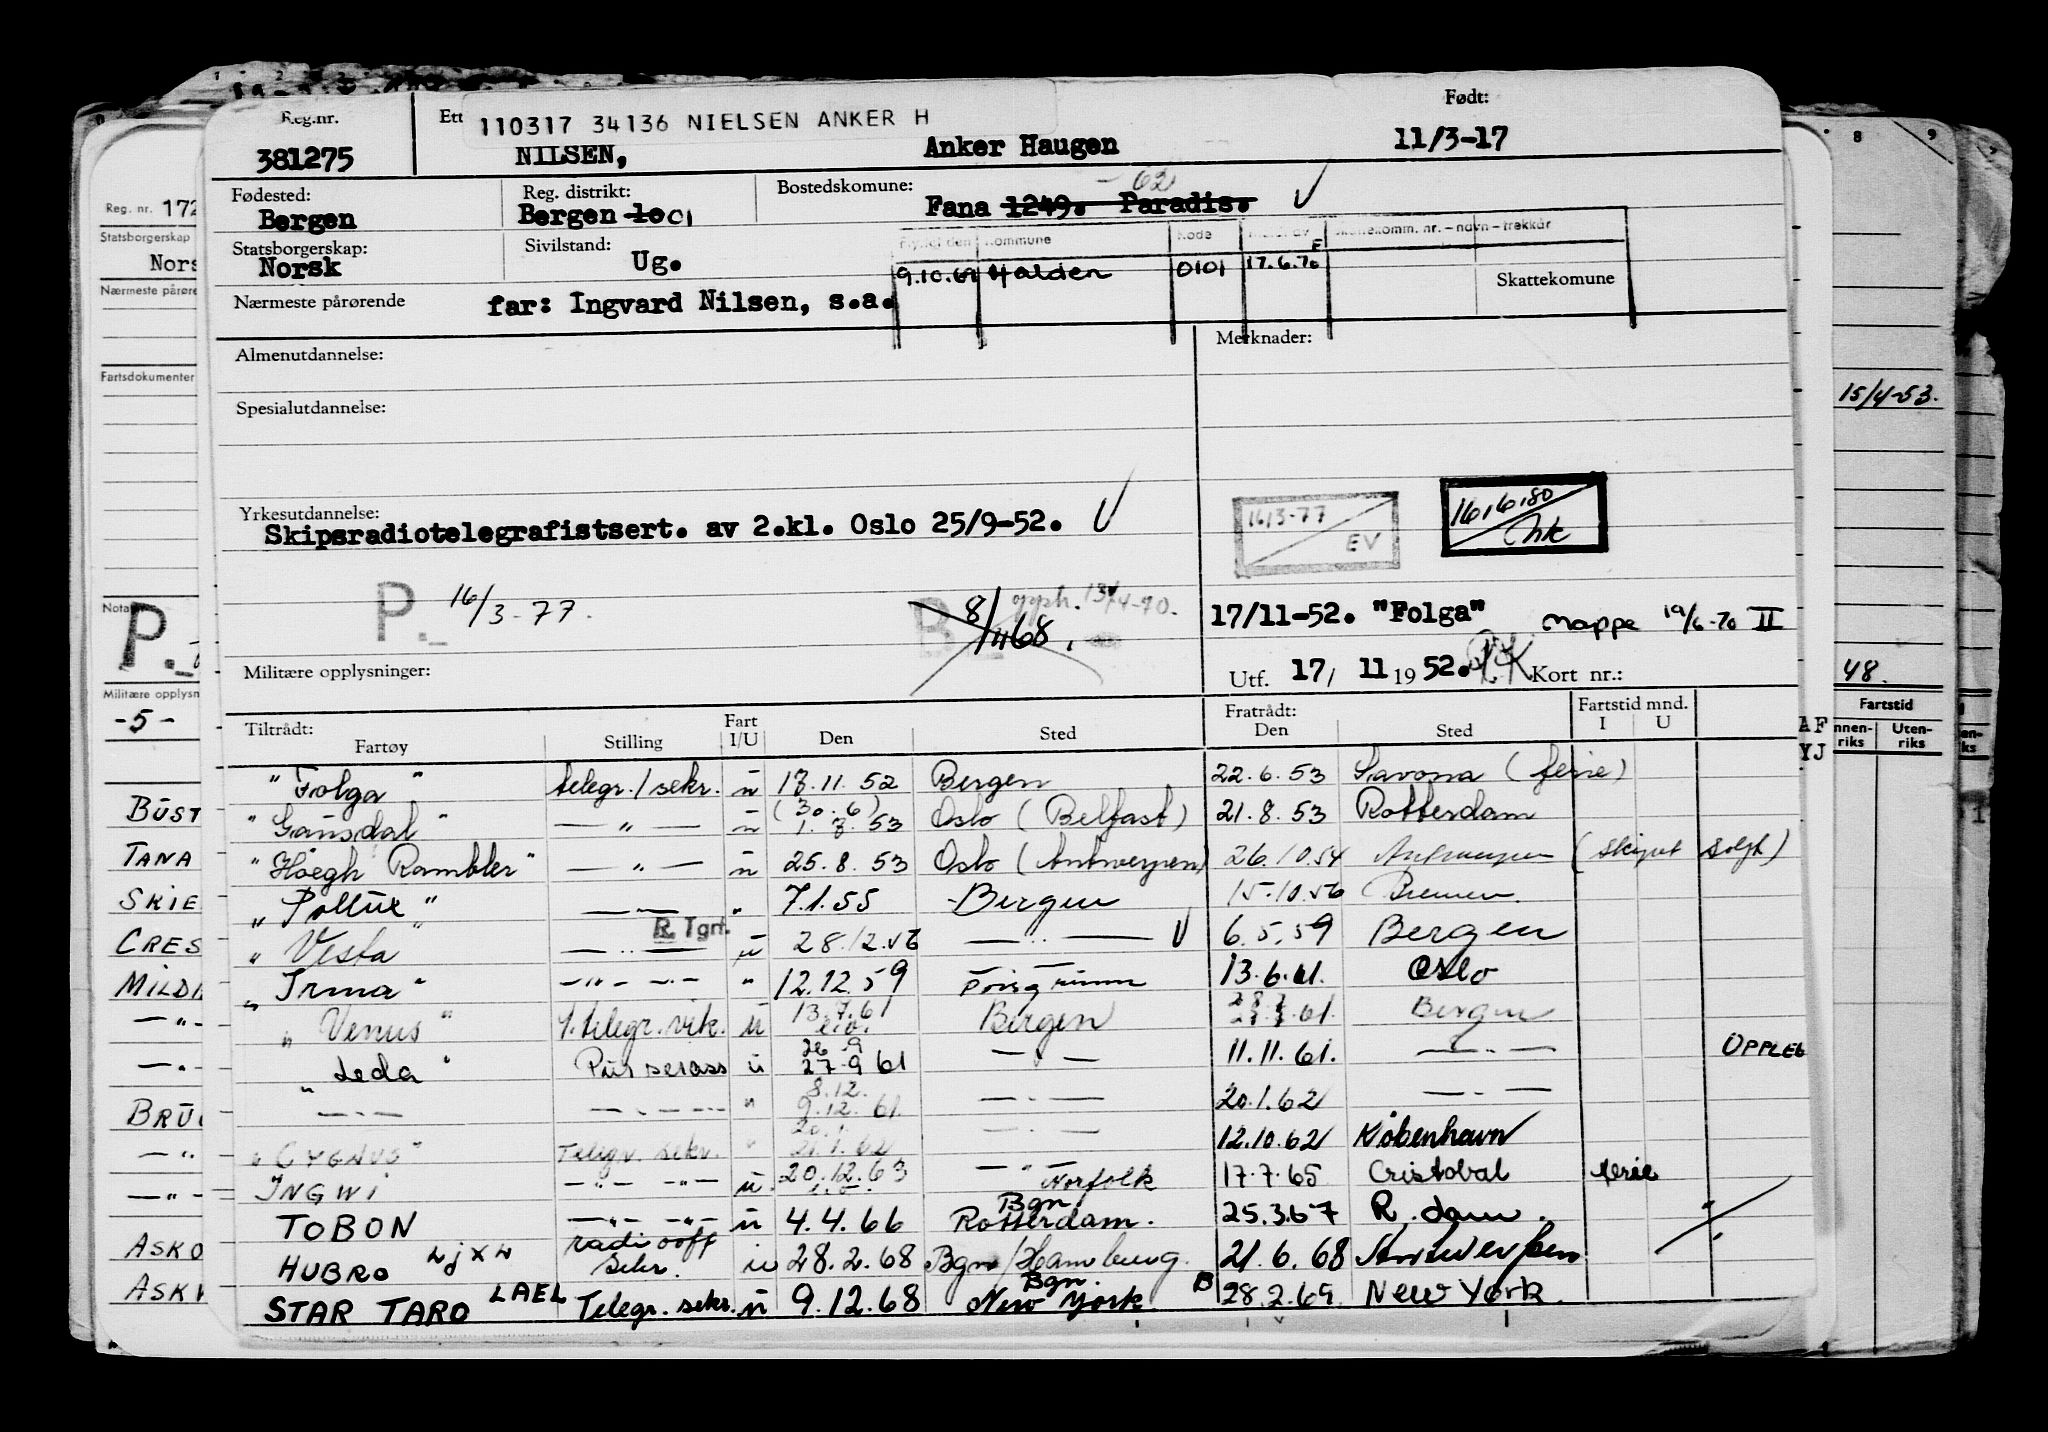 Reg.nr. Ett 110317 34136 NIELSEN ANKER H Født:
381275 NILSEN, Anker Haugen 11/3-17
Fødested: Reg. distrikt: Bostedskomune: - 62
Bergen Bergen 1001 Fana 1249. Paradis. V
Statsborgerskap: Sivilstand: Kommune Kode
Norsk Ug. 9.10.69 Halden 0101 17.6.70 Skattekomune
Nærmeste pårørende far: Ingvard Nilsen, s.a.
Almenutdannelse: Merknader:
Spesialutdannelse:
Yrkesutdannelse:
Skipsradiotelegrafistsert. av 2.kl. Oslo 25/9-52. V
16/3-77 EV 16.6.80
P. 16/3-77. B 8/11 68. opph. 13/4-70.
17/11-52. "Folga" Mappe 19/6-70 II
Militære opplysninger: Utf. 17/ 11 1952. Kort nr.:
Tiltrådt: Fart Fratrådt: Fartstid mnd.
Fartøy Stilling I/U Den Sted Den Sted I U
"Folga" telegr./sekr. u 17.11.52 Bergen 22.6.53 Savona (ferie)
"Gausdal" — " — u (30.6) 1.7.53 Oslo (Belfast) 21.8.53 Rotterdam
"Høegh Rambler" — " — u 25.8.53 Oslo (Antwerpen) 26.10.54 Antwerpen (skipet solgt)
"Pollux" — " — " 7.1.55 Bergen 15.10.56 Bremen.
"Vesta" — " — R. Tgrf. u 28.12.56 — " — V 6.5.59 Bergen
"Irma" — " — " — " 12.12.59 13.6.61. Oslo
"Venus" 1. telegr. vik. u 13.7.61 Bergen 61. Bergen
"Leda" Purserass u 26.9 27.9 61 — " — 11.11.61. — " —
— " — — " — " 8.12. 9.12. 61. — " — 20.1.62 — " —
"CYGNUS" Telegr. sekr. " 20.1. 21.1.62 — " — 12.10.62 København
INGWI — " — " — u. 20.12.63 — " Norfolk 17.7.65 Cristobal ferie
TOBON — " — " — u 4.4.66 Bgn. Rotterdam. 25.3.67 R.dam.
HUBRO LJXW radiooff sekr. u 28.2.68 Bgn/Hamburg. 21.6.68 Antwerpen
STAR TARO LAEL Telegr. sekr. u 9.12.68 Bgn. New York B 28.2.69. New York.
Reg. nr. 172
Statsborgerskap
Nors
Nærmeste pårøre
Fartsdokumenter
P.
Militære opplysn
-5-
BUST
TANA
SKIE
CRES
MILD
ASKO
8 9
15/4-53.
48.
Fartstid
Uten-
riks
AF
YJ
OPPLEG